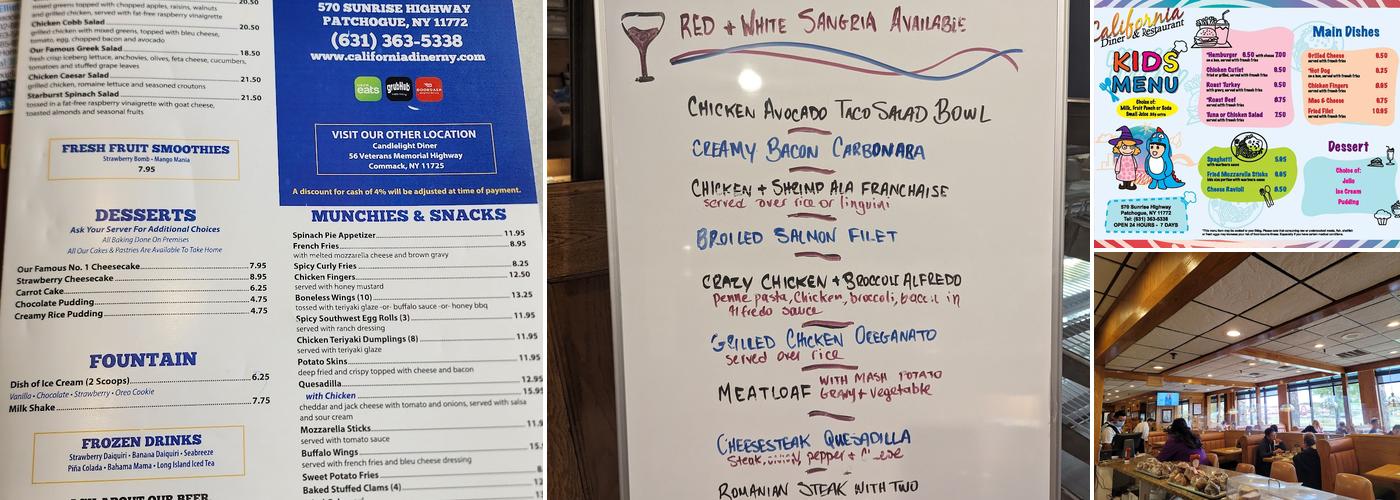 mixed greens topped with chopped apples, raisins, walnuts
and grilled chicken, served with fat-free raspberry vinaigrette
20.50
Chicken Cobb Salad 20.50
grilled chicken, served with mixed greens, topped with bleu cheese,
tomato, egg, chopped bacon and avocado
Our Famous Greek Salad 18.50
fresh crisp iceberg lettuce, anchovies, olives, feta cheese, cucumbers,
tomatoes and stuffed grape leaves
Chicken Caesar Salad 21.50
grilled chicken, romaine lettuce and seasoned croutons
Starburst Spinach Salad 21.50
tossed in a fat-free raspberry vinaigrette with goat cheese,
toasted almonds and seasonal fruits
FRESH FRUIT SMOOTHIES
Strawberry Bomb • Mango Mania
7.95
DESSERTS
Ask Your Server For Additional Choices
All Baking Done On Premises
All Our Cakes & Pastries Are Available To Take Home
Our Famous No. 1 Cheesecake 7.95
Strawberry Cheesecake 8.95
Carrot Cake 6.25
Chocolate Pudding 4.75
Creamy Rice Pudding 4.75
FOUNTAIN
Dish of Ice Cream (2 Scoops) 6.25
Vanilla • Chocolate • Strawberry • Oreo Cookie
Milk Shake 7.75
FROZEN DRINKS
Strawberry Daiquiri • Banana Daiquiri • Seabreeze
Piña Colada • Bahama Mama • Long Island Iced Tea
ABOUT OUR BEER
570 SUNRISE HIGHWAY
PATCHOGUE, NY 11772
(631) 363-5338
www.californiadinerny.com
eats
GRUBHUB
DOORDASH
VISIT OUR OTHER LOCATION
Candlelight Diner
56 Veterans Memorial Highway
Commack, NY 11725
A discount for cash of 4% will be adjusted at time of payment.
MUNCHIES & SNACKS
Spinach Pie Appetizer 11.95
French Fries 8.95
with melted mozzarella cheese and brown gravy
Spicy Curly Fries 8.25
Chicken Fingers 12.50
served with honey mustard
Boneless Wings (10) 13.25
tossed with teriyaki glaze -or- buffalo sauce -or- honey bbq
Spicy Southwest Egg Rolls (3) 11.95
served with ranch dressing
Chicken Teriyaki Dumplings (8) 11.95
served with teriyaki glaze
Potato Skins 11.95
deep fried and crispy topped with cheese and bacon
Quesadilla 12.95
with Chicken 15.95
cheddar and jack cheese with tomato and onions, served with salsa
and sour cream
Mozzarella Sticks
served with tomato sauce
Buffalo Wings
served with french fries and bleu cheese dressing
Sweet Potato Fries
Baked Stuffed Clams (4)
RED + WHITE SANGRIA AVAILABLE
CHICKEN AVOCADO TACO SALAD BOWL
CREAMY BACON CARBONARA
CHICKEN + SHRIMP ALA FRANCHAISE
served over rice or linguini
BROILED SALMON FILET
CRAZY CHICKEN + BROCCOLI ALFREDO
penne pasta, Chicken, broccoli, in
Alfredo sauce
GRILLED CHICKEN OREGANATO
served over rice
MEATLOAF WITH MASH POTATO
GRAVY + Vegetable
CHEESESTEAK QUESADILLA
Steak, pepper +
ROMANIAN STEAK WITH TWO
California
Diner & Restaurant
KIDS
MENU
Choice of:
Milk, Fruit Punch or Soda
Small Juice
570 Sunrise Highway
Patchogue, NY 11772
Tel: (631) 363-5338
OPEN 24 HOURS - 7 DAYS
*Hamburger 6.50 with cheese 7.00
on a bun, served with french fries
Chicken Cutlet 8.50
fried or grilled, served with french fries
Roast Turkey 8.50
with gravy, served with french fries
*Roast Beef 8.75
served with french fries
Tuna or Chicken Salad 7.50
Spaghetti 5.95
with marinara sauce
Fried Mozzarella Sticks
Cheese Ravioli 8.50
Main Dishes
Grilled Cheese 6.50
served with french fries
*Hot Dog
served with french fries
Chicken Fingers 8.95
served with french fries
Mac & Cheese
Fried Filet 10.95
served with french fries
Dessert
Choice of:
Jello
Ice Cream
Pudding